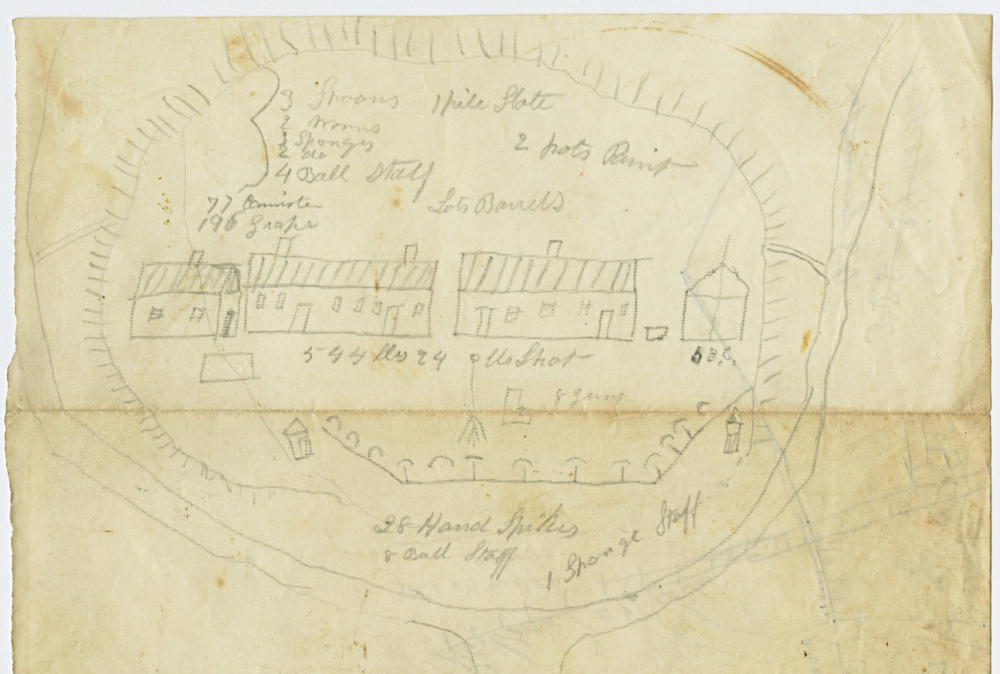 3 Spoons
1 pile Slate
2 Worms
3 Sponges
2 do
2 pots Paint
4 Ball Staff
77 Cannister
Lots Barrels
196 Grape
544 lbs 24 lb Shot
8 guns
28 Hand Spikes
8 Ball Staff
1 Sponge Staff